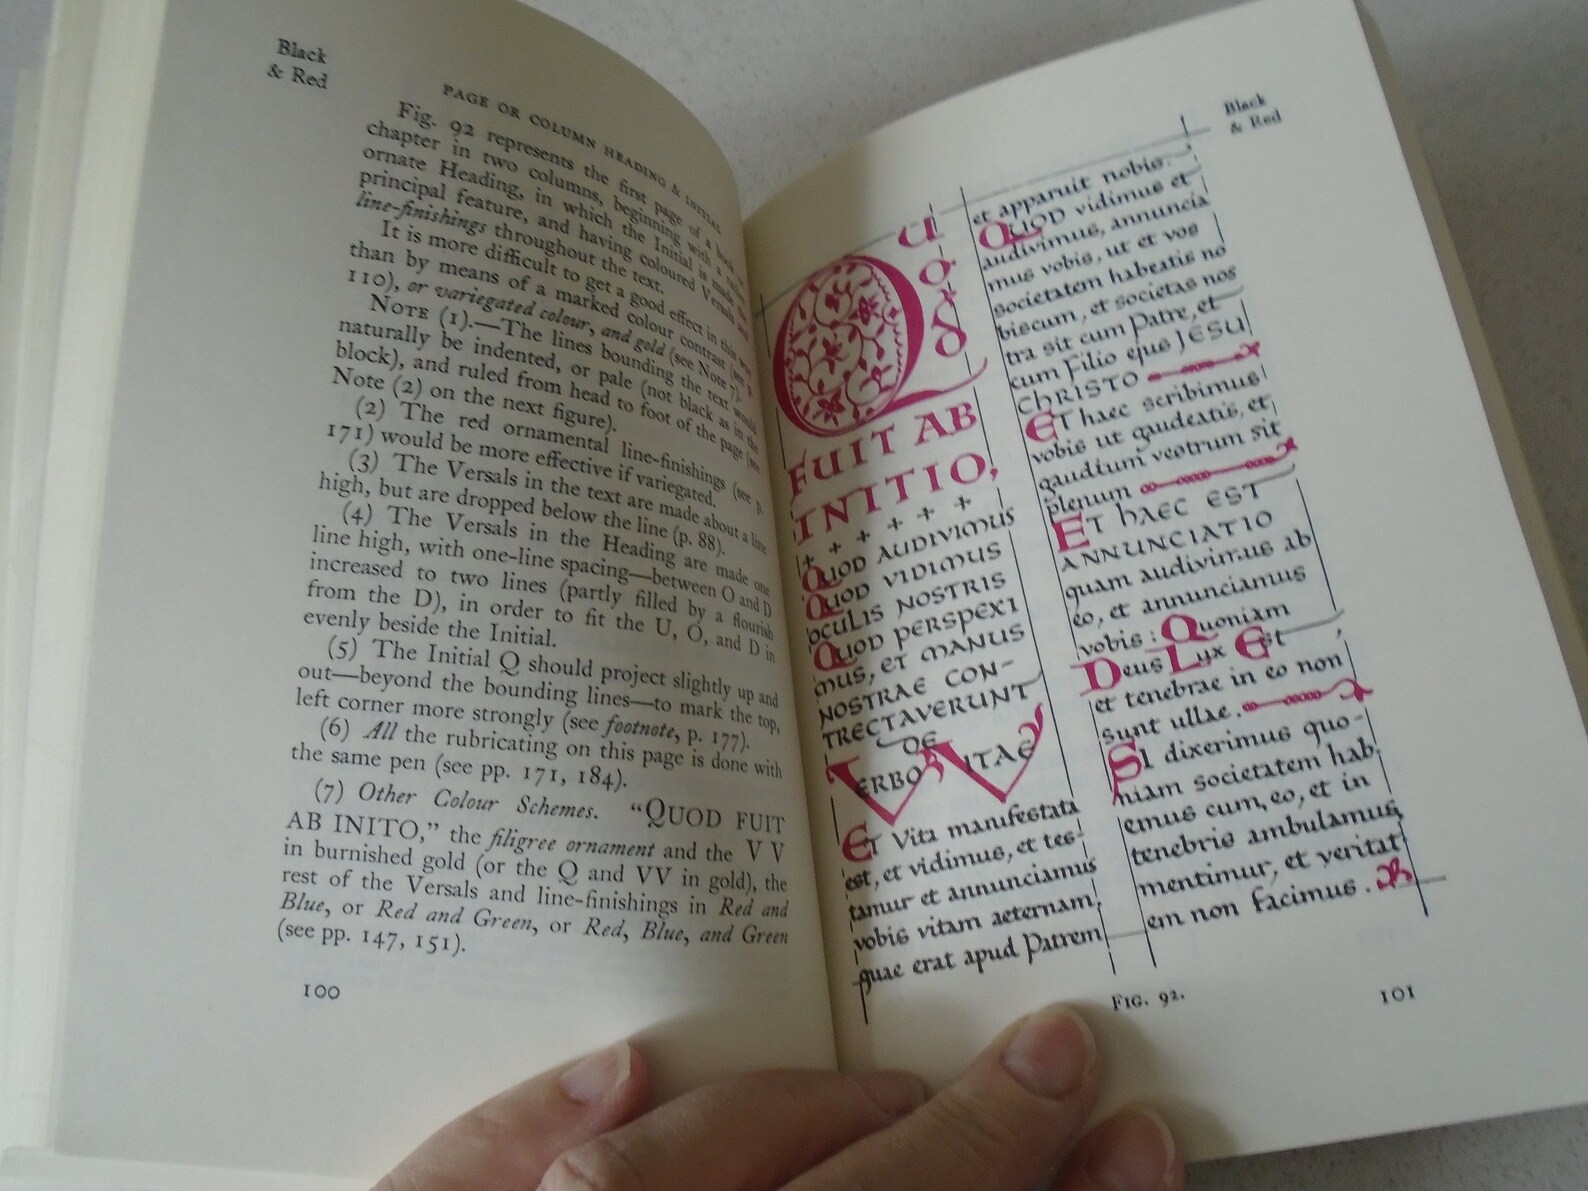 Black
& Red
PAGE OR COLUMN HEADING & INITIAL
Fig. 92 represents the first page of a book or
chapter in two columns, beginning with a rather
ornate Heading, in which the Initial is made the
principal feature, and having coloured Versals and
line-finishings throughout the text.
It is more difficult to get a good effect in this way
than by means of a marked colour contrast (see p.
110), or variegated colour, and gold (see Note 7).
NOTE (1).—The lines bounding the text would
naturally be indented, or pale (not black as in the
block), and ruled from head to foot of the page (see
Note (2) on the next figure).
(2) The red ornamental line-finishings (see p.
171) would be more effective if variegated.
(3) The Versals in the text are made about a line
high, but are dropped below the line (p. 88).
(4) The Versals in the Heading are made one
line high, with one-line spacing—between O and D
increased to two lines (partly filled by a flourish
from the D), in order to fit the U, O, and D in
evenly beside the Initial.
(5) The Initial Q should project slightly up and
out—beyond the bounding lines—to mark the top,
left corner more strongly (see footnote, p. 177).
(6) All the rubricating on this page is done with
the same pen (see pp. 171, 184).
(7) Other Colour Schemes. "QUOD FUIT
AB INITO," the filigree ornament and the V V
in burnished gold (or the Q and VV in gold), the
rest of the Versals and line-finishings in Red and
Blue, or Red and Green, or Red, Blue, and Green
(see pp. 147, 151).
100
Black
& Red
QUOD
FUIT AB
INITIO,
+ + + + + +
QUOD AUDIVIMUS
QUOD VIDIMUS
OCULIS NOSTRIS
QUOD PERSPEXI
MUS, ET MANUS
NOSTRAE CON-
TRECTAVERUNT
DE
VERBO VITAE
ET Vita manifestata
est, et vidimus, et tes-
tamur et annunciamus
vobis vitam aeternam,
quae erat apud Patrem
et apparuit nobis.
QUOD vidimus et
audivimus, annuncia
mus vobis, ut et vos
societatem habeatis no
biscum, et societas nos
tra sit cum Patre, et
cum Filio ejus JESU
CHRISTO
ET haec scribimus
vobis ut gaudeatis, et
gaudium vestrum sit
plenum
ET HAEC EST
ANNUNCIATIO
quam audivimus ab
eo, et annunciamus
vobis: Quoniam
Deus Lux Est
et tenebrae in eo non
sunt ullae.
SI dixerimus quo-
niam societatem hab
emus cum eo, et in
tenebris ambulamus,
mentimur, et veritat
em non facimus.
FIG. 92.
101